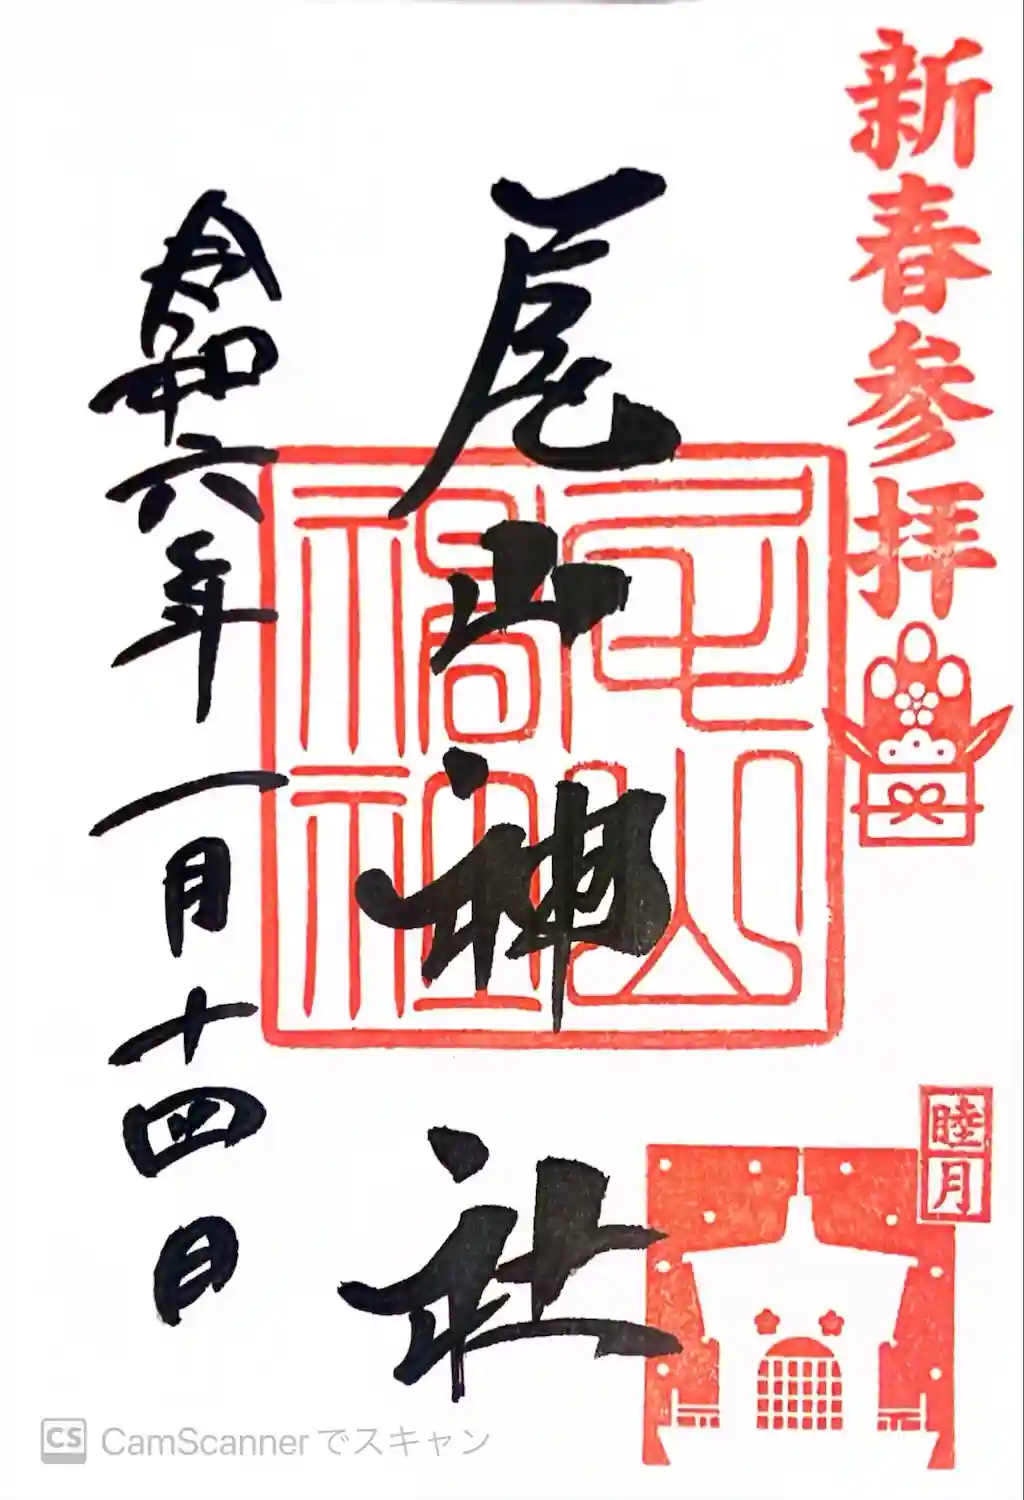 新春参拝
尾山神社
尾山神社
睦月
令和六年一月十四日
CS CamScannerでスキャン